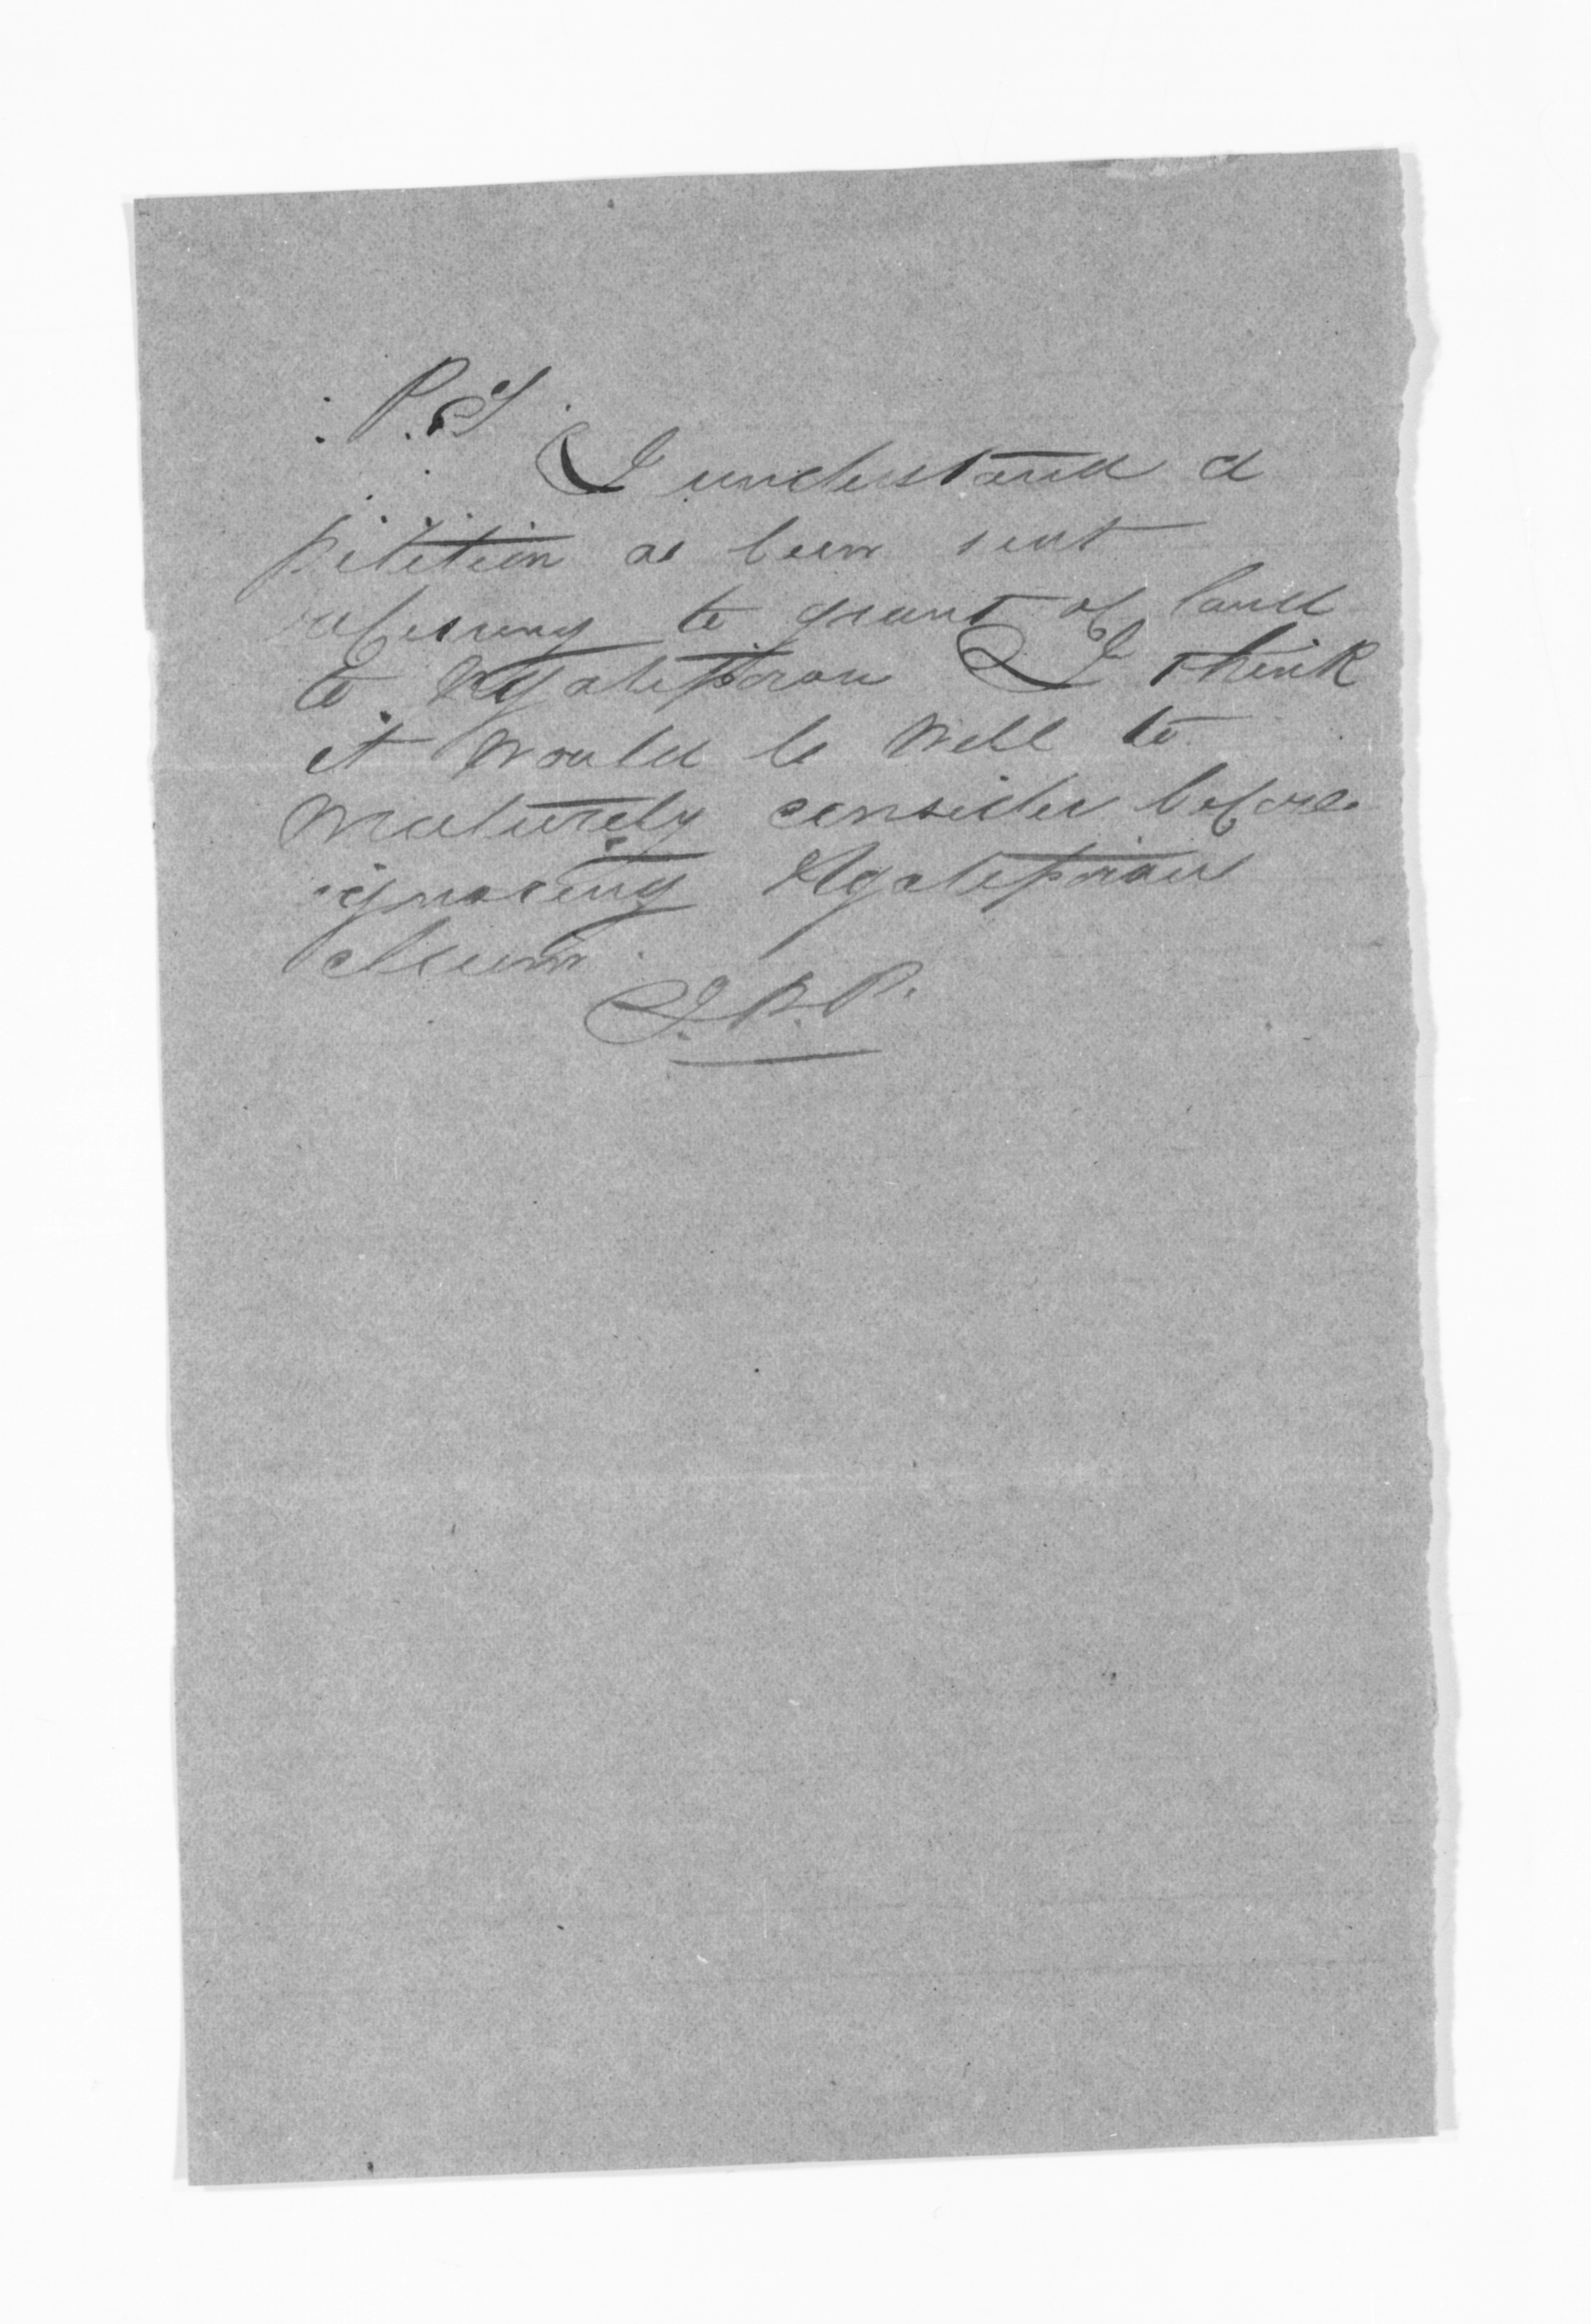 P.S
I understand a
petition as been sent
refering to grant of land
to I think
it would be well to
maturely consider before
ignoring
claim.
J.P.P.